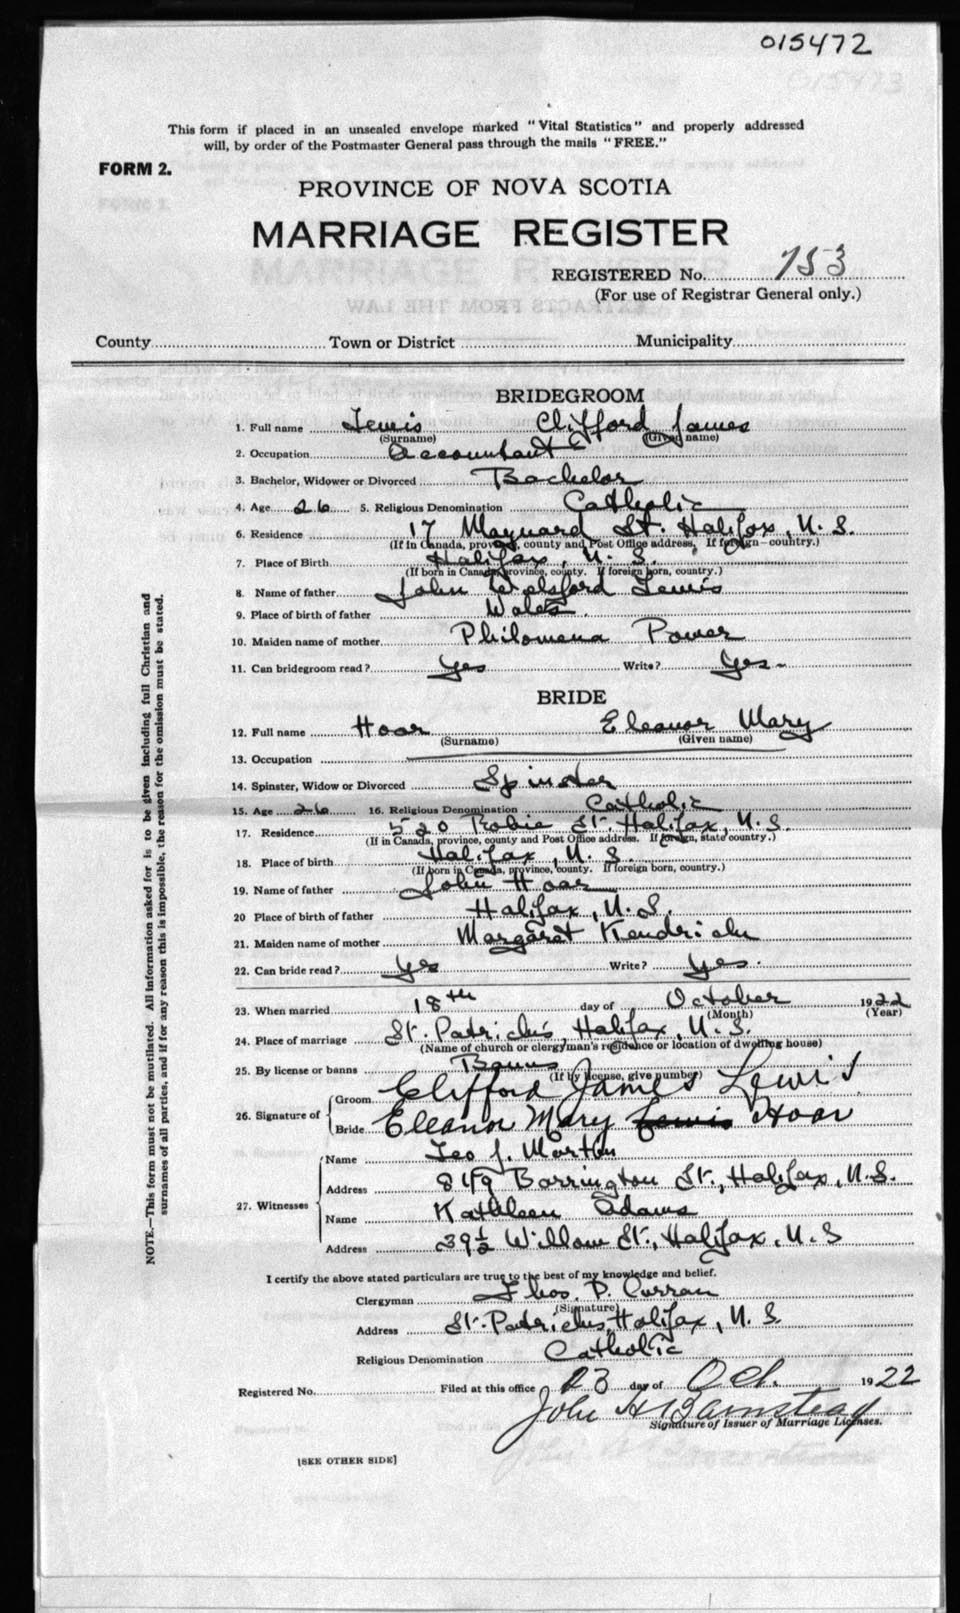 015472
This form if placed in an unsealed envelope marked "Vital Statistics" and properly addressed
will, by order of the Postmaster General pass through the mails "FREE."
FORM 2.
PROVINCE OF NOVA SCOTIA
MARRIAGE REGISTER
REGISTERED No. 753
(For use of Registrar General only.)
County Town or District Municipality
BRIDEGROOM
1. Full name Lewis Clifford James
(Surname) (Given name)
2. Occupation Accountant
3. Bachelor, Widower or Divorced Bachelor
4. Age 26 5. Religious Denomination Catholic
6. Residence 17 Maynard St. Halifax, N.S.
(If in Canada, province, county and Post Office address, If foreign—country.)
7. Place of Birth Halifax, N.S.
(If born in Canada, province, county. If foreign born, country.)
8. Name of father John Welsford Lewis
9. Place of birth of father Wales.
10. Maiden name of mother Philomena Power
11. Can bridegroom read? Yes Write? Yes
BRIDE
12. Full name Hoar Eleanor Mary
(Surname) (Given name)
13. Occupation
14. Spinster, Widow or Divorced Spinster
15. Age 26 16. Religious Denomination Catholic
17. Residence 520 Robie St. Halifax, N.S.
(If in Canada, province, county and Post Office address. If foreign, state country.)
18. Place of birth Halifax, N.S.
(If born in Canada, province, county. If foreign born, country.)
19. Name of father John Hoar
20 Place of birth of father Halifax, N.S.
21. Maiden name of mother Margaret Kendrick
22. Can bride read? Yes Write? Yes.
23. When married 18th day of October 1922
(Month) (Year)
24. Place of marriage St. Patrick's, Halifax, N.S.
(Name of church or clergyman's residence or location of dwelling house)
25. By license or banns Banns
(If by license, give number)
26. Signature of
Groom Clifford James Lewis
Bride Eleanor Mary Lewis Hoar
27. Witnesses
Name Leo J. Martin
Address 849 Barrington St., Halifax, N.S.
Name Kathleen Adams
Address 39½ Willow St., Halifax, N.S
I certify the above stated particulars are true to the best of my knowledge and belief.
Clergyman Thos. P. Curran
(Signature)
Address St. Patrick's, Halifax, N.S.
Religious Denomination Catholic
Registered No. Filed at this office 23 day of Oct. 1922
John H Barnstead
Signature of Issuer of Marriage Licenses.
[SEE OTHER SIDE]
NOTE.—This form must not be mutilated. All information asked for is to be given including full Christian and
surnames of all parties, and if for any reason this is impossible, the reason for the omission must be stated.